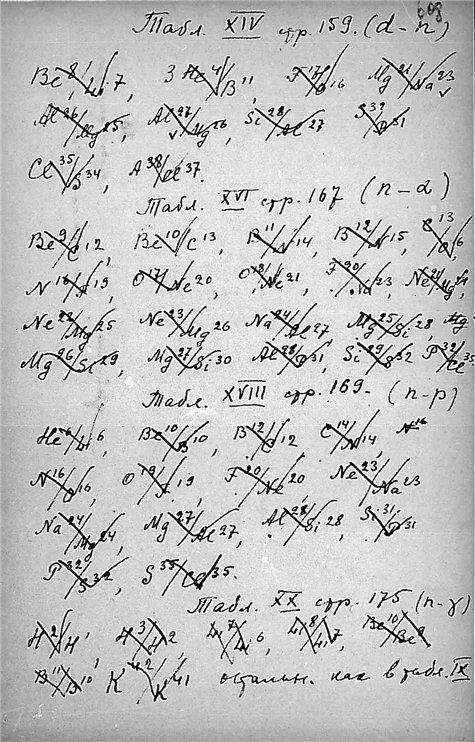 608
Табл. XIV стр. 159. (d-n)
Be⁸/Li⁷, 3 He⁴/B¹¹, F¹⁷/O¹⁶, Mg²⁴/Na²³
Al²⁶/Mg²⁵, Al²⁷/Mg²⁶, Si²⁸/Al²⁷ S³²/P³¹
Cl³⁵/S³⁴, A³⁸/Cl³⁷.
Табл. XVI стр. 167 (n-α)
Be⁹/C¹², Be¹⁰/C¹³, B¹¹/N¹⁴, B¹²/N¹⁵, C¹³/O¹⁶
N¹⁶/F¹⁹, O¹⁷/Ne²⁰, O¹⁸/Ne²¹, F²⁰/Na²³, Ne²¹/Mg²⁴,
Ne²²/Mg²⁵ Ne²³/Mg²⁶ Na²⁴/Al²⁷ Mg²⁵/Si²⁸,
Mg²⁶/Si²⁹, Mg²⁷/Si³⁰ Al²⁸/P³¹, Si²⁹/S³² P³²/Cl³⁵
Табл. XVIII стр. 169. (n-p)
He⁶/Li⁶, Be¹⁰/B¹⁰, B¹²/C¹², C¹⁴/N¹⁴ N¹⁶
N¹⁶/O¹⁶, O¹⁹/F¹⁹, F²⁰/Ne²⁰ Ne²³/Na²³
Na²⁴/Mg²⁴, Mg²⁷/Al²⁷, Al²⁸/Si²⁸, Si³¹/P³¹
P³²/S³², S³⁵/Cl³⁵.
Табл. XX стр. 175 (n-γ)
H²/H¹, H³/H², Li⁷/Li⁶, Li⁸/Li⁷, Be¹⁰/Be⁹
B¹¹/B¹⁰, K⁴²/K⁴¹ остальн. как в табл. IX